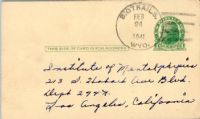 BOTHAIL
FEB
24
1941
WYO.
THIS SIDE OF CARD IS FOR ADDRESS
Institute of Mentalphysics
213 S. Hobart Blvd.
Dept 244X
Los Angeles, California